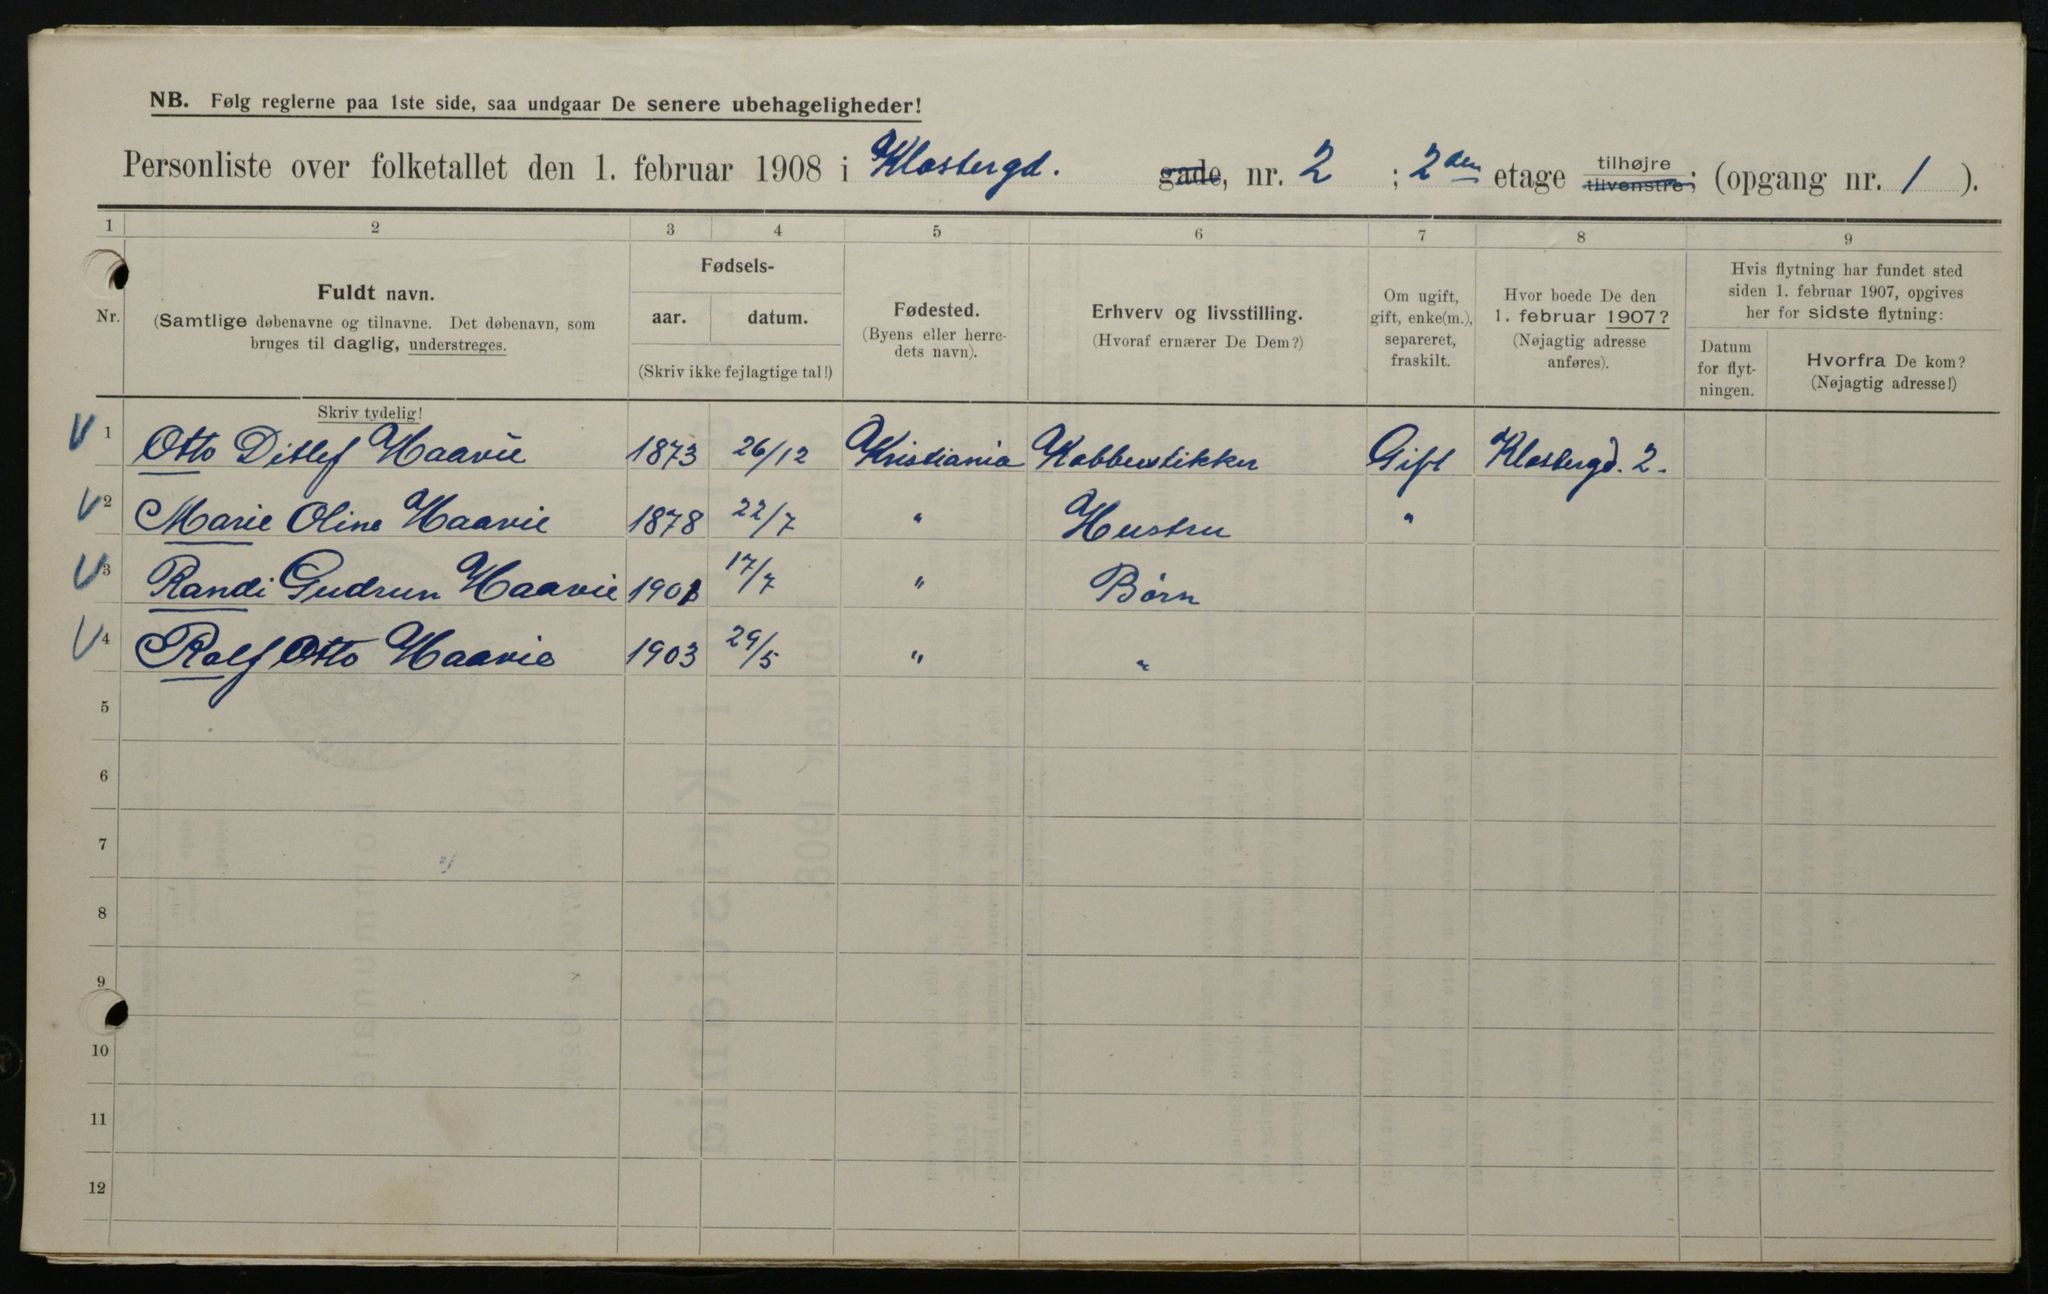 NB. Følg reglerne paa 1ste side, saa undgaar De senere ubehageligheder!
Personliste over folketallet den 1. februar 1908 i Klostergd. gade, nr. 2 ; 2den etage tilhøjre tilvenstre; (opgang nr. 1 ).
1 2 3 4 5 6 7 8 9
Nr.
Fuldt navn.
(Samtlige døbenavne og tilnavne. Det døbenavn, som
bruges til daglig, understreges.
Skriv tydelig!
Fødsels-
aar. datum.
(Skriv ikke fejlagtige tal!)
Fødested.
(Byens eller herre-
dets navn).
Erhverv og livsstilling.
(Hvoraf ernærer De Dem?)
Om ugift,
gift, enke(m.),
separeret,
fraskilt.
Hvor boede De den
1. februar 1907?
(Nøjagtig adresse
anføres).
Hvis flytning har fundet sted
siden 1. februar 1907, opgives
her for sidste flytning:
Datum
for flyt-
ningen.
Hvorfra De kom?
(Nøjagtig adresse!)
V 1 Otto Ditlef Haavie 1873 26/12 Kristiania Kobberstikker Gift Klostergd. 2.
V 2 Marie Oline Haavie 1878 22/7 " Hustru "
V 3 Randi Gudrun Haavie 1901 17/7 " Børn
V 4 Rolf Otto Haavie 1903 29/5 " "
5
6
7
8
9
10
11
12